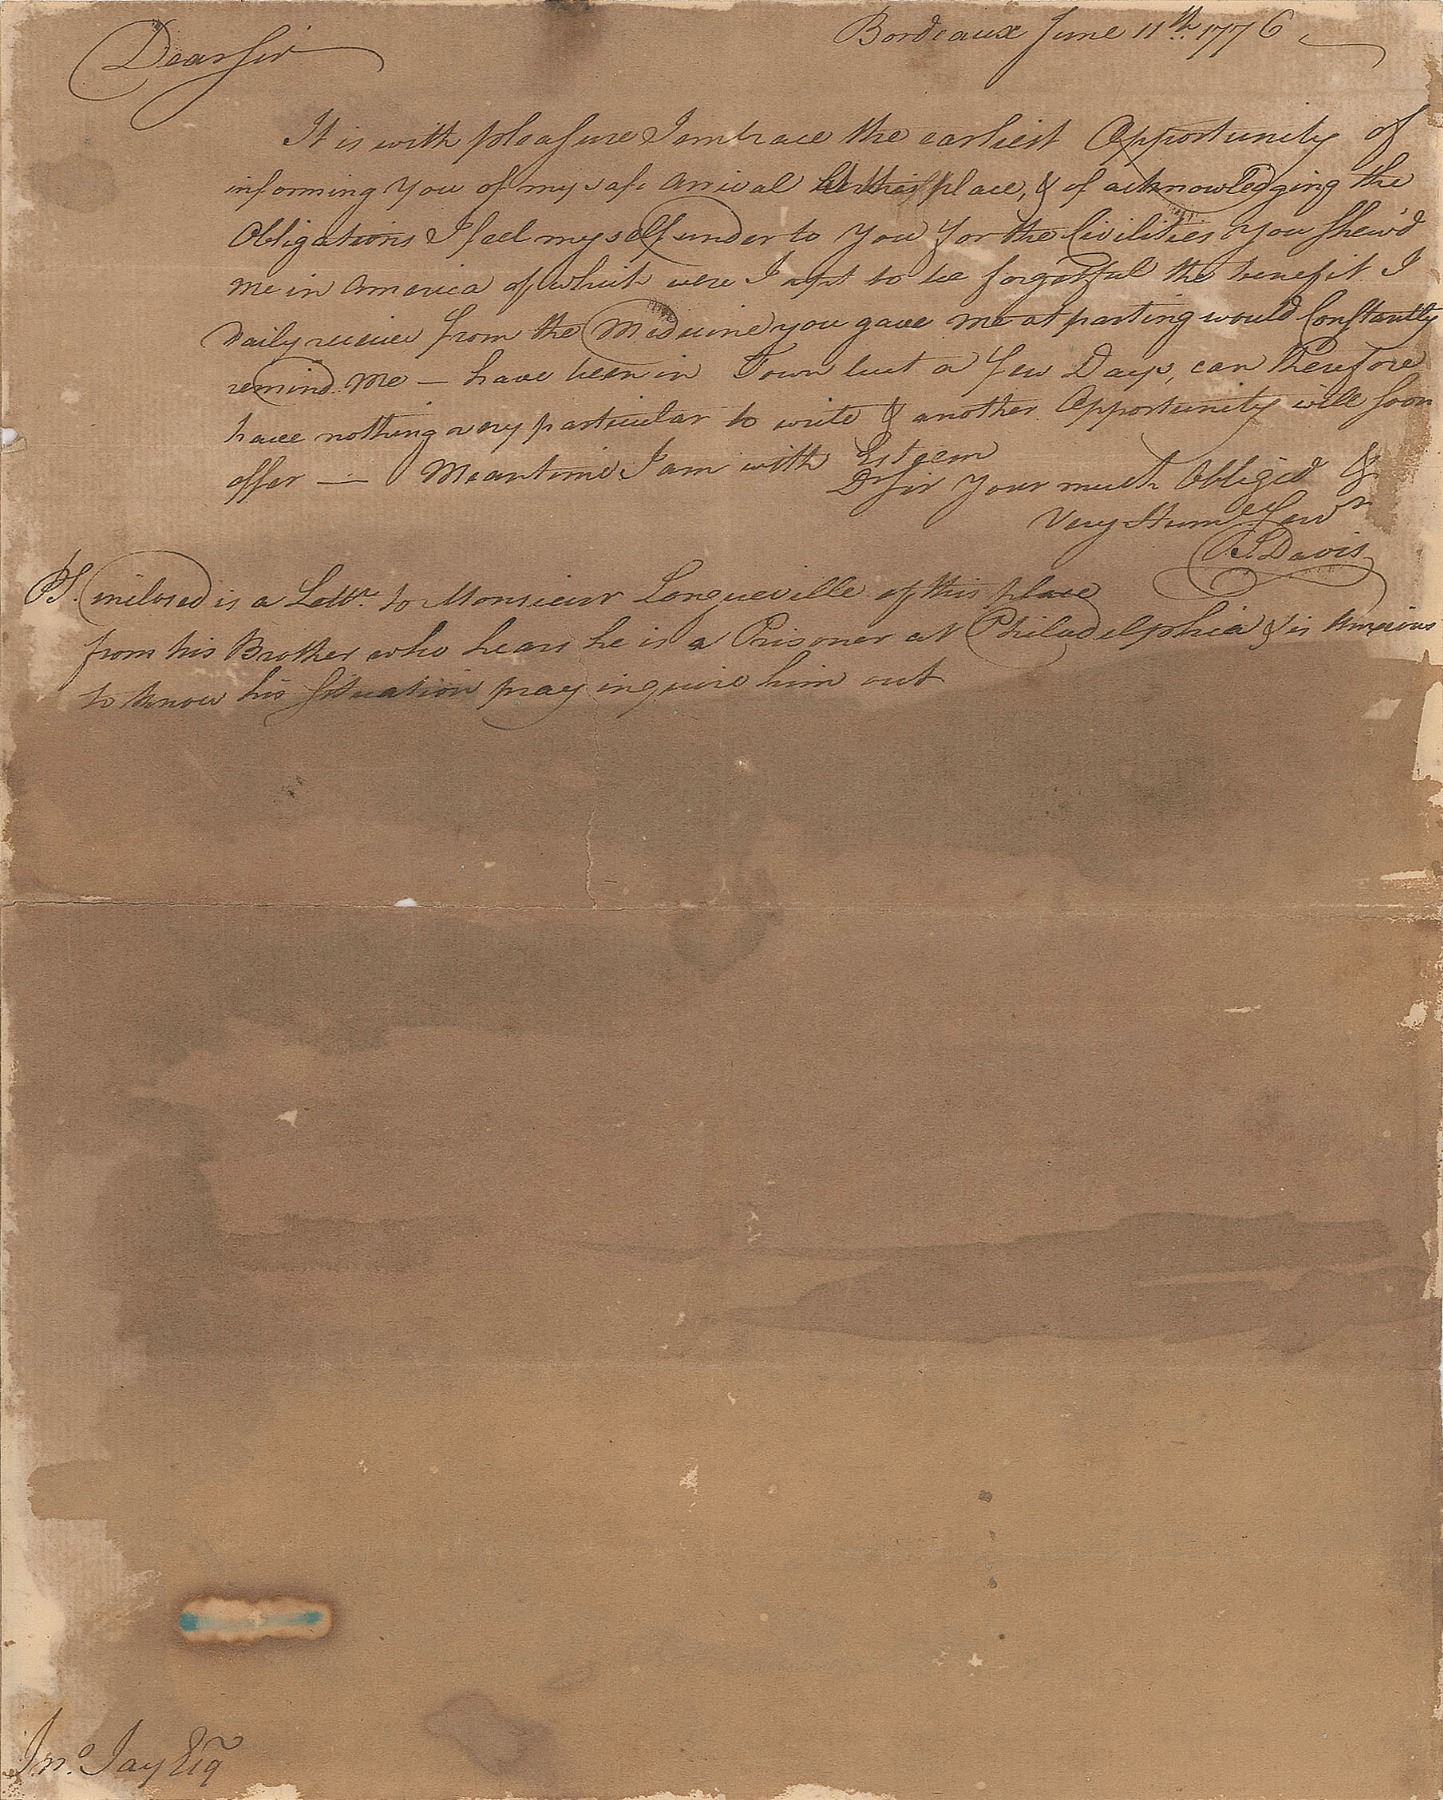 Bordeaux June 11th. 1776
Dear Sir
It is with pleasure I embrace the earliest Opportunity of
informing You of my safe Arrival At this place, & of acknowledging the
Obligations I feel myself under to You for the Civilities You shew'd
me in America of which were I apt to be forgetful the benefit I
Daily receive from the Medicine you gave me at parting would Constantly
remind me — have been in Town but a few Days, can therefore
have nothing very particular to write & another Opportunity will soon
offer — Meantime I am with Esteem
Dr Sir Your much Obliged &
Very Humle Servt
Davis
PS. inclosed is a Lettr. to Monsieur Longueville of this place
from his Brother who hears he is a Prisoner at Philadelphia & is Anxious
to know his Situation pray inquire him out
Jno. Jay Esq